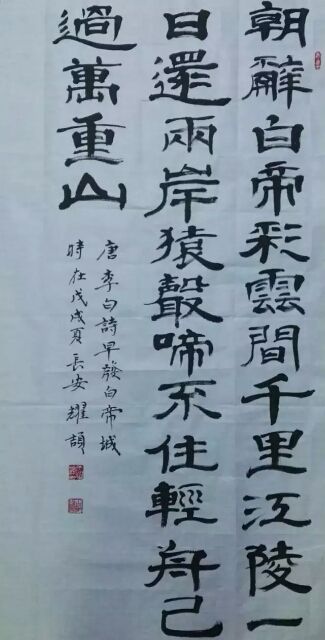 朝辭白帝彩雲間千里江陵一
日還兩岸猿聲啼不住輕舟已
過萬重山
唐李白詩早發白帝城
時在戊戌夏長安耀頡